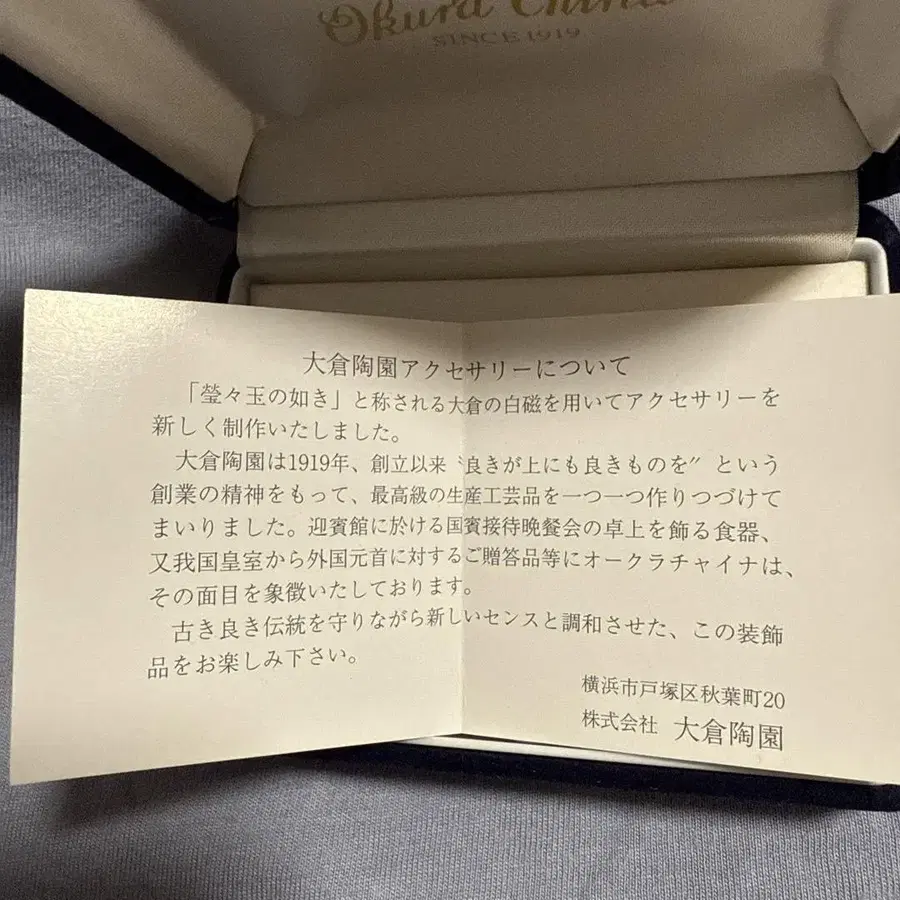 Okura China
SINCE 1919
大倉陶園アクセサリーについて
「瑩々玉の如き」と称される大倉の白磁を用いてアクセサリーを
新しく制作いたしました。
大倉陶園は1919年、創立以来〝良きが上にも良きものを〞という
創業の精神をもって、最高級の生産工芸品を一つ一つ作りつづけて
まいりました。迎賓館に於ける国賓接待晩餐会の卓上を飾る食器、
又我国皇室から外国元首に対するご贈答品等にオークラチャイナは、
その面目を象徴いたしております。
古き良き伝統を守りながら新しいセンスと調和させた、この装飾
品をお楽しみ下さい。
横浜市戸塚区秋葉町20
株式会社 大倉陶園